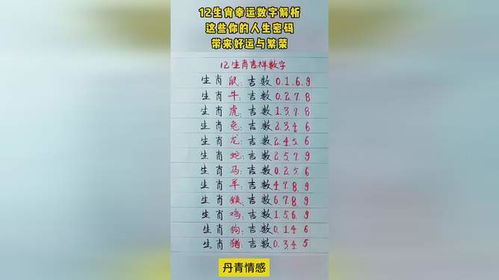 12生肖幸运数字解析
这些你的人生密码
带来好运与繁荣
12生肖吉祥数字
生肖鼠:吉数0.1.6.9
生肖牛:吉数0.2.7.8
生肖虎:吉数1.3.7.8
生肖兔:吉数2.3.4.6
生肖龙:吉数2.4.5.6
生肖蛇:吉数2.5.7.9
生肖马:吉数0.2.5.6
生肖羊:吉数4.7.8.9
生肖猴:吉数6.7.8.9
生肖鸡:吉数1.5.6.9
生肖狗:吉数0.1.4.6
生肖猪:吉数0.3.4.5
丹青情感